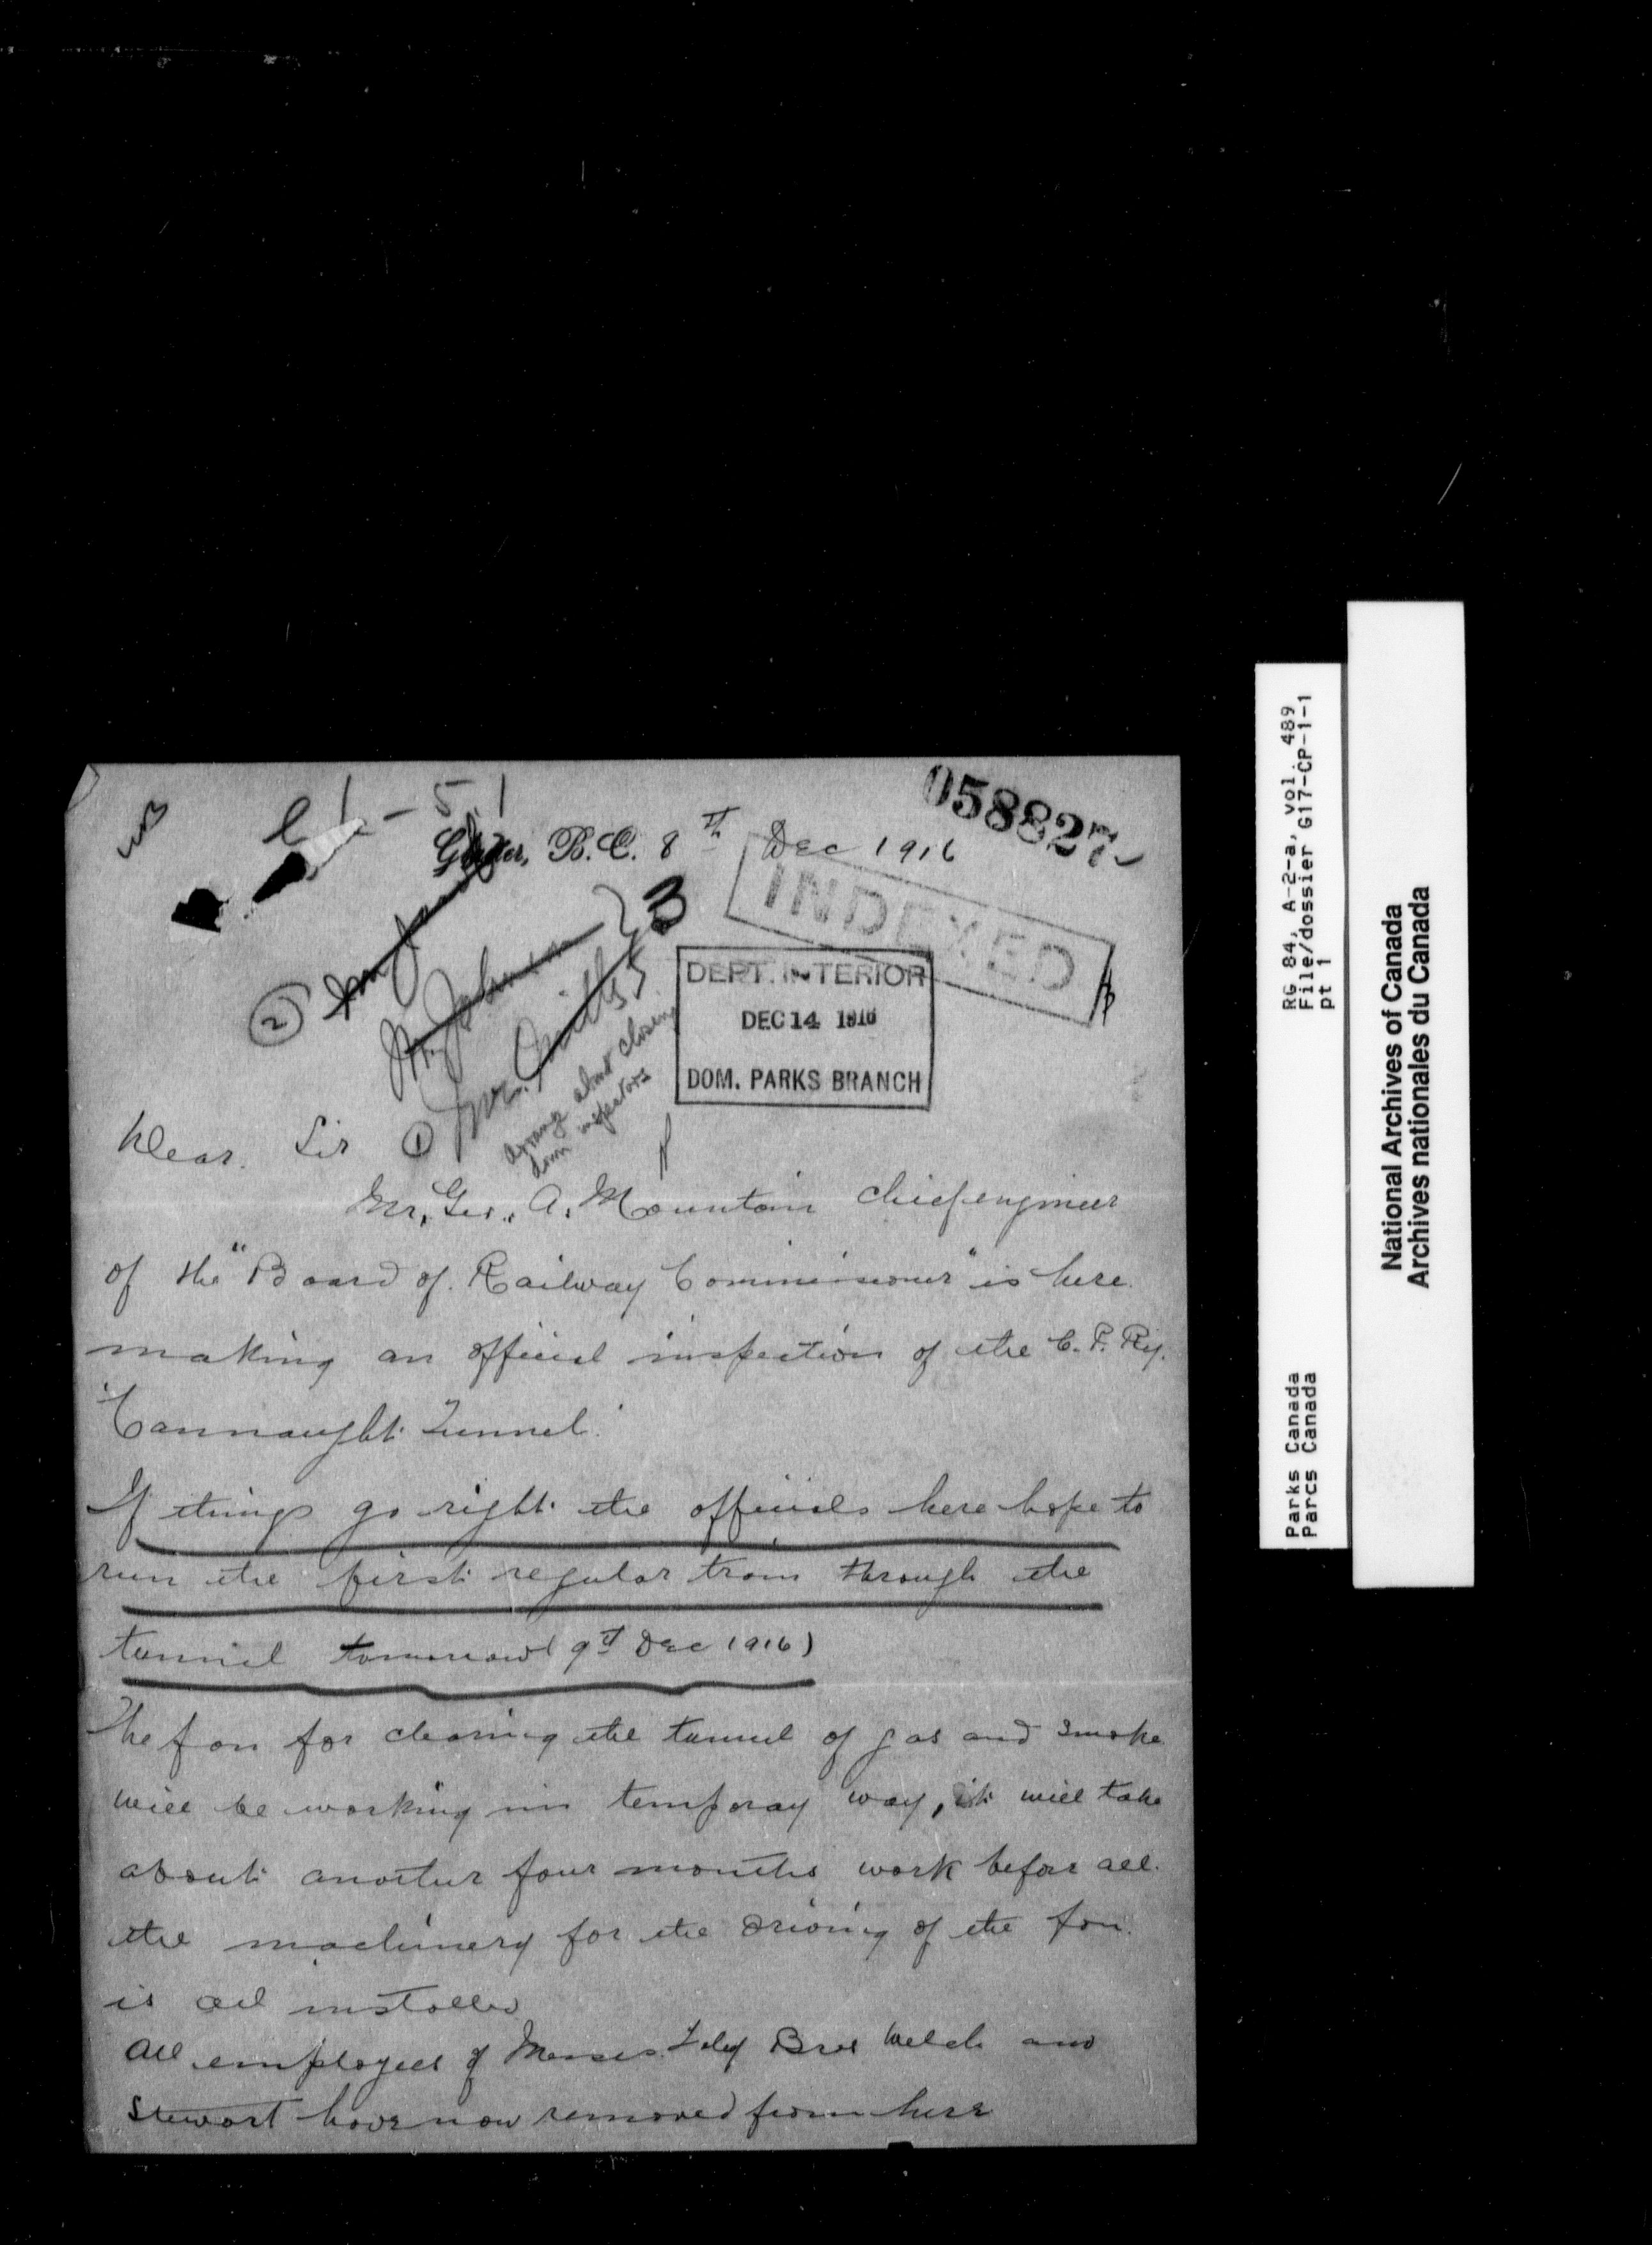 058827
Glacier, B.C. 8th Dec 1916
INDEXED
3
② 
Mr. Johnson
① Mr. Smith
Arrange about closing
down inspectors
DEPT. INTERIOR
DEC 14 1916
DOM. PARKS BRANCH
Dear Sir
Mr. Geo. A. Mountain chief engineer
of the "Board of Railway Commissioner" is here
making an official inspection of the C. P. Ry.
"Connaught Tunnel"
If things go right the officials here hope to
run the first regular train through the
tunnel tomorrow (9th Dec 1916)
The fan for clearing the tunnel of gas and smoke
will be working in temporay way, it will take
about another four months work befor all
the machinery for the driving of the fan
is all installed
All employees of Messrs Foley Bros Welch and
Stewart have now removed from here
RG 84, A-2-a, vol. 489
File/dossier G17-CP-1-1
pt 1
Parks Canada
Parcs Canada
National Archives of Canada
Archives nationales du Canada